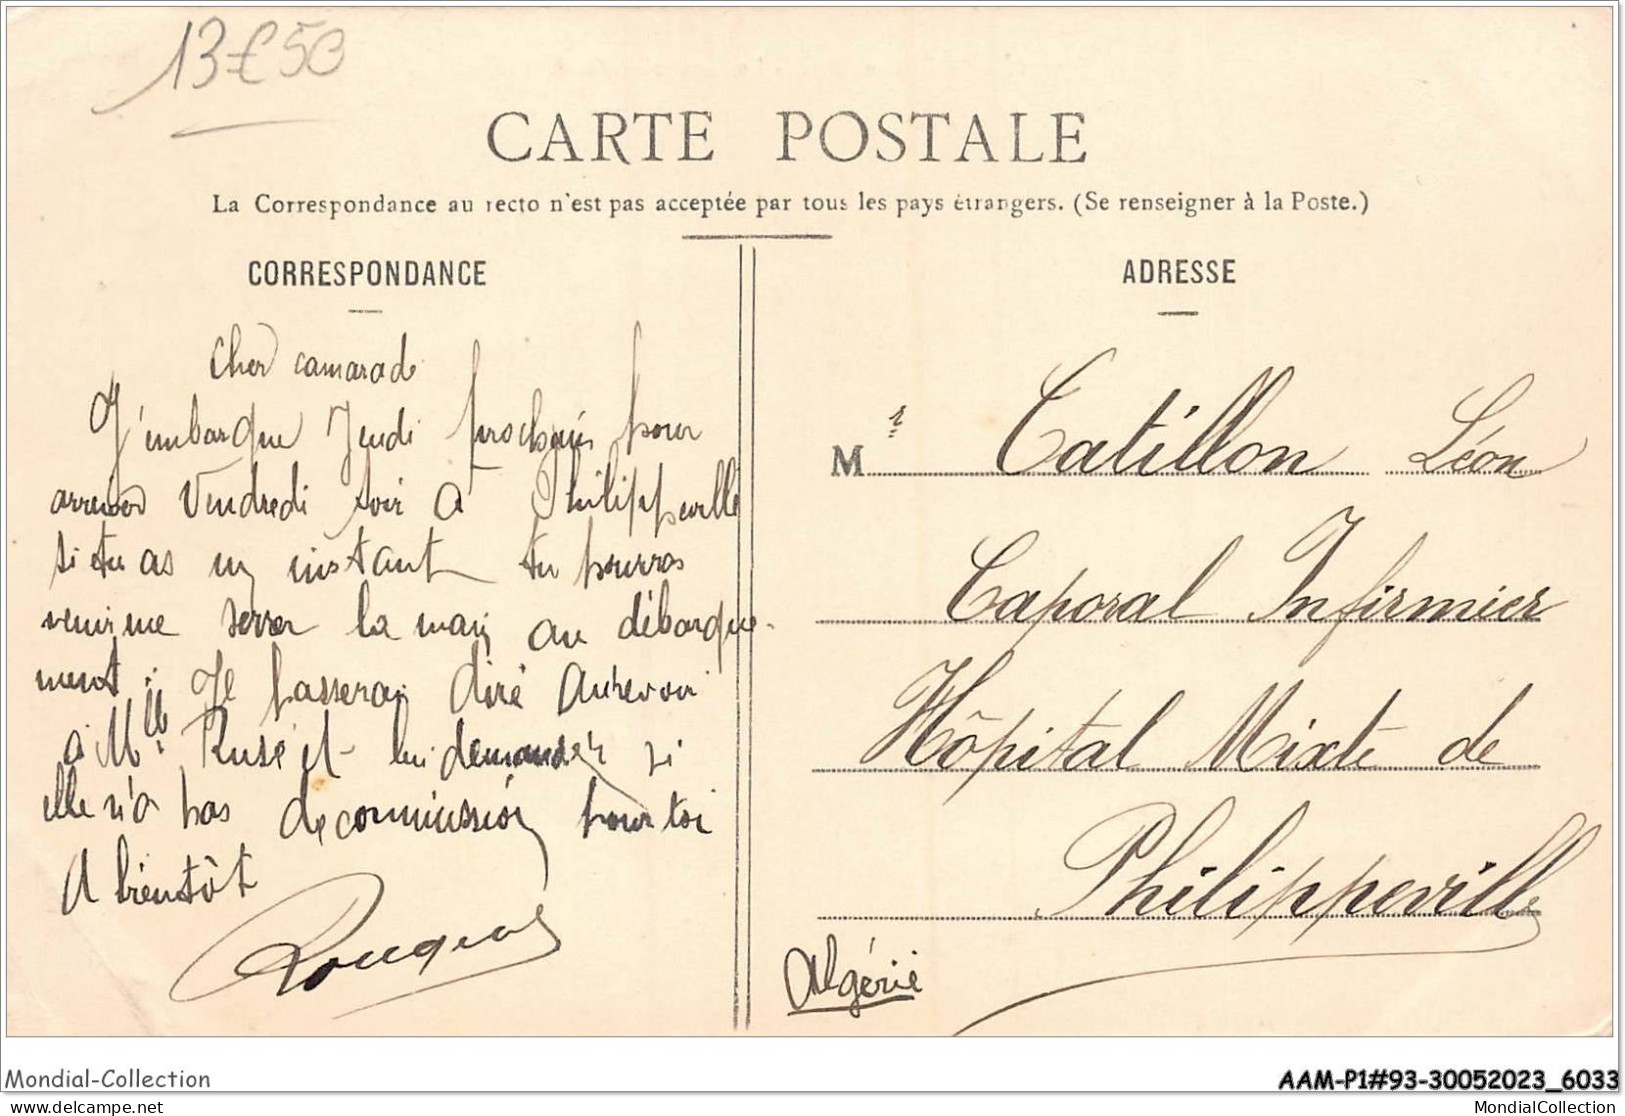 13€50
CARTE POSTALE
La Correspondance au recto n'est pas acceptée par tous les pays étrangers. (Se renseigner à la Poste.)
CORRESPONDANCE
Cher camarade
J'embarque Jeudi prochain pour
arriver Vendredi soir à Philippeville
si tu as un instant tu pourras
venir me serrer la main au débarque-
ment. Je passerai dire Aurevoir
à Mlle et lui demander si
elle n'a pas de commission pour toi
A bientôt
ADRESSE
Mr Catillon Léon
Caporal Infirmier
Hôpital Mixte de
Philippeville
Algérie
Mondial-Collection
AAM-P1#93-30052023_6033
delcampe.net
MondialCollection